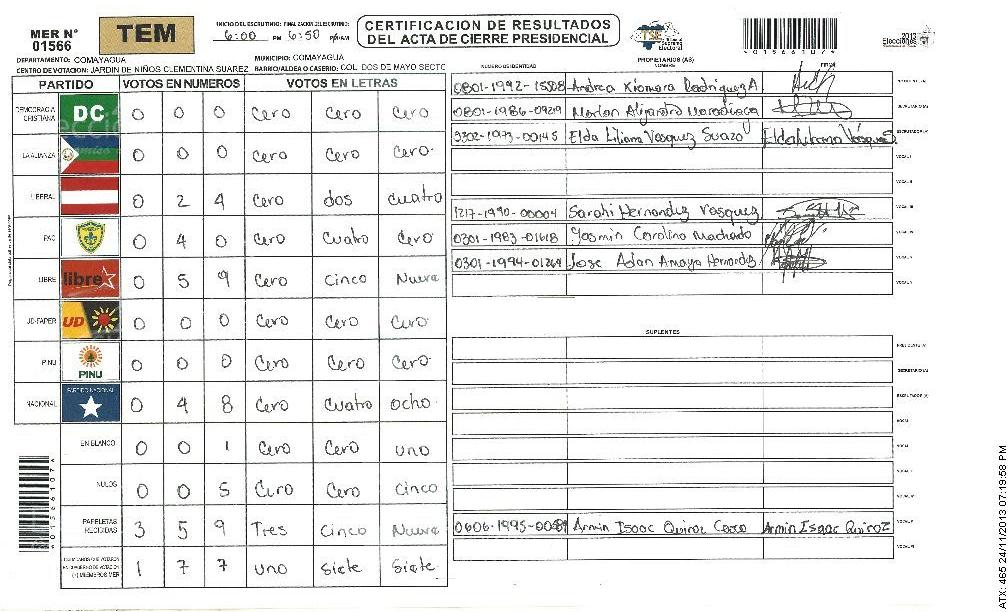 MER N°
01566
TEM
INICIO DEL ESCRUTINIO: FINALIZACION DEL ESCRUTINIO:
6:00 PM 6:50 PM/AM
CERTIFICACION DE RESULTADOS
DEL ACTA DE CIERRE PRESIDENCIAL
TSE Tribunal Supremo Electoral
2013
Elecciones
DEPARTAMENTO: COMAYAGUA MUNICIPIO: COMAYAGUA
CENTRO DE VOTACION: JARDIN DE NIÑOS CLEMENTINA SUAREZ BARRIO/ALDEA O CASERIO: COL. DOS DE MAYO SECTO
PARTIDO VOTOS EN NUMEROS VOTOS EN LETRAS
DEMOCRACIA CRISTIANA DC 0 0 0 Cero Cero Cero
LA ALIANZA 0 0 0 Cero Cero Cero
LIBERAL 0 2 4 Cero dos cuatro
PAC 0 4 0 Cero Cuatro Cero
LIBRE libre 0 5 9 Cero Cinco Nueve
UD-FAPER UD 0 0 0 Cero Cero Cero
PINU PINU 0 0 0 Cero Cero Cero
NACIONAL PARTIDO NACIONAL 0 4 8 Cero Cuatro ocho
EN BLANCO 0 0 1 Cero Cero uno
NULOS 0 0 5 Cero Cero Cinco
PAPELETAS RECIBIDAS 3 5 9 Tres Cinco Nueve
CIUDADANOS QUE VOTARON
EN CUADERNO DE VOTACION
(+) MIEMBROS MER 1 7 7 uno Siete Siete
PROPIETARIOS (AS)
NUMERO DE IDENTIDAD NOMBRE FIRMA
0801-1992-15508 Andrea Xiomara Rodriguez A PRESIDENTE (A)
0801-1986-0929 Marlon Alijandro Maradiaga SECRETARIO (A)
0302-1973-00145 Elda Liliana Vasquez Suazo Elda Liliana Vásquez S. ESCRUTADOR (A)
VOCAL I
VOCAL II
1217-1990-00004 Sarahi Hernandez Vasquez VOCAL III
0301-1983-01618 Yasmin Carolina Machado VOCAL IV
0301-1994-01264 Jose Adan Amaya Hernandez VOCAL V
VOCAL VI
SUPLENTES
PRESIDENTE (A)
SECRETARIO (A)
ESCRUTADOR (A)
VOCAL I
VOCAL II
VOCAL III
VOCAL IV
0606-1995-0089 Armin Isaac Quiroz Armin Isaac Quiroz VOCAL V
VOCAL VI
ATX: 465 24/11/2013 07:19:58 PM